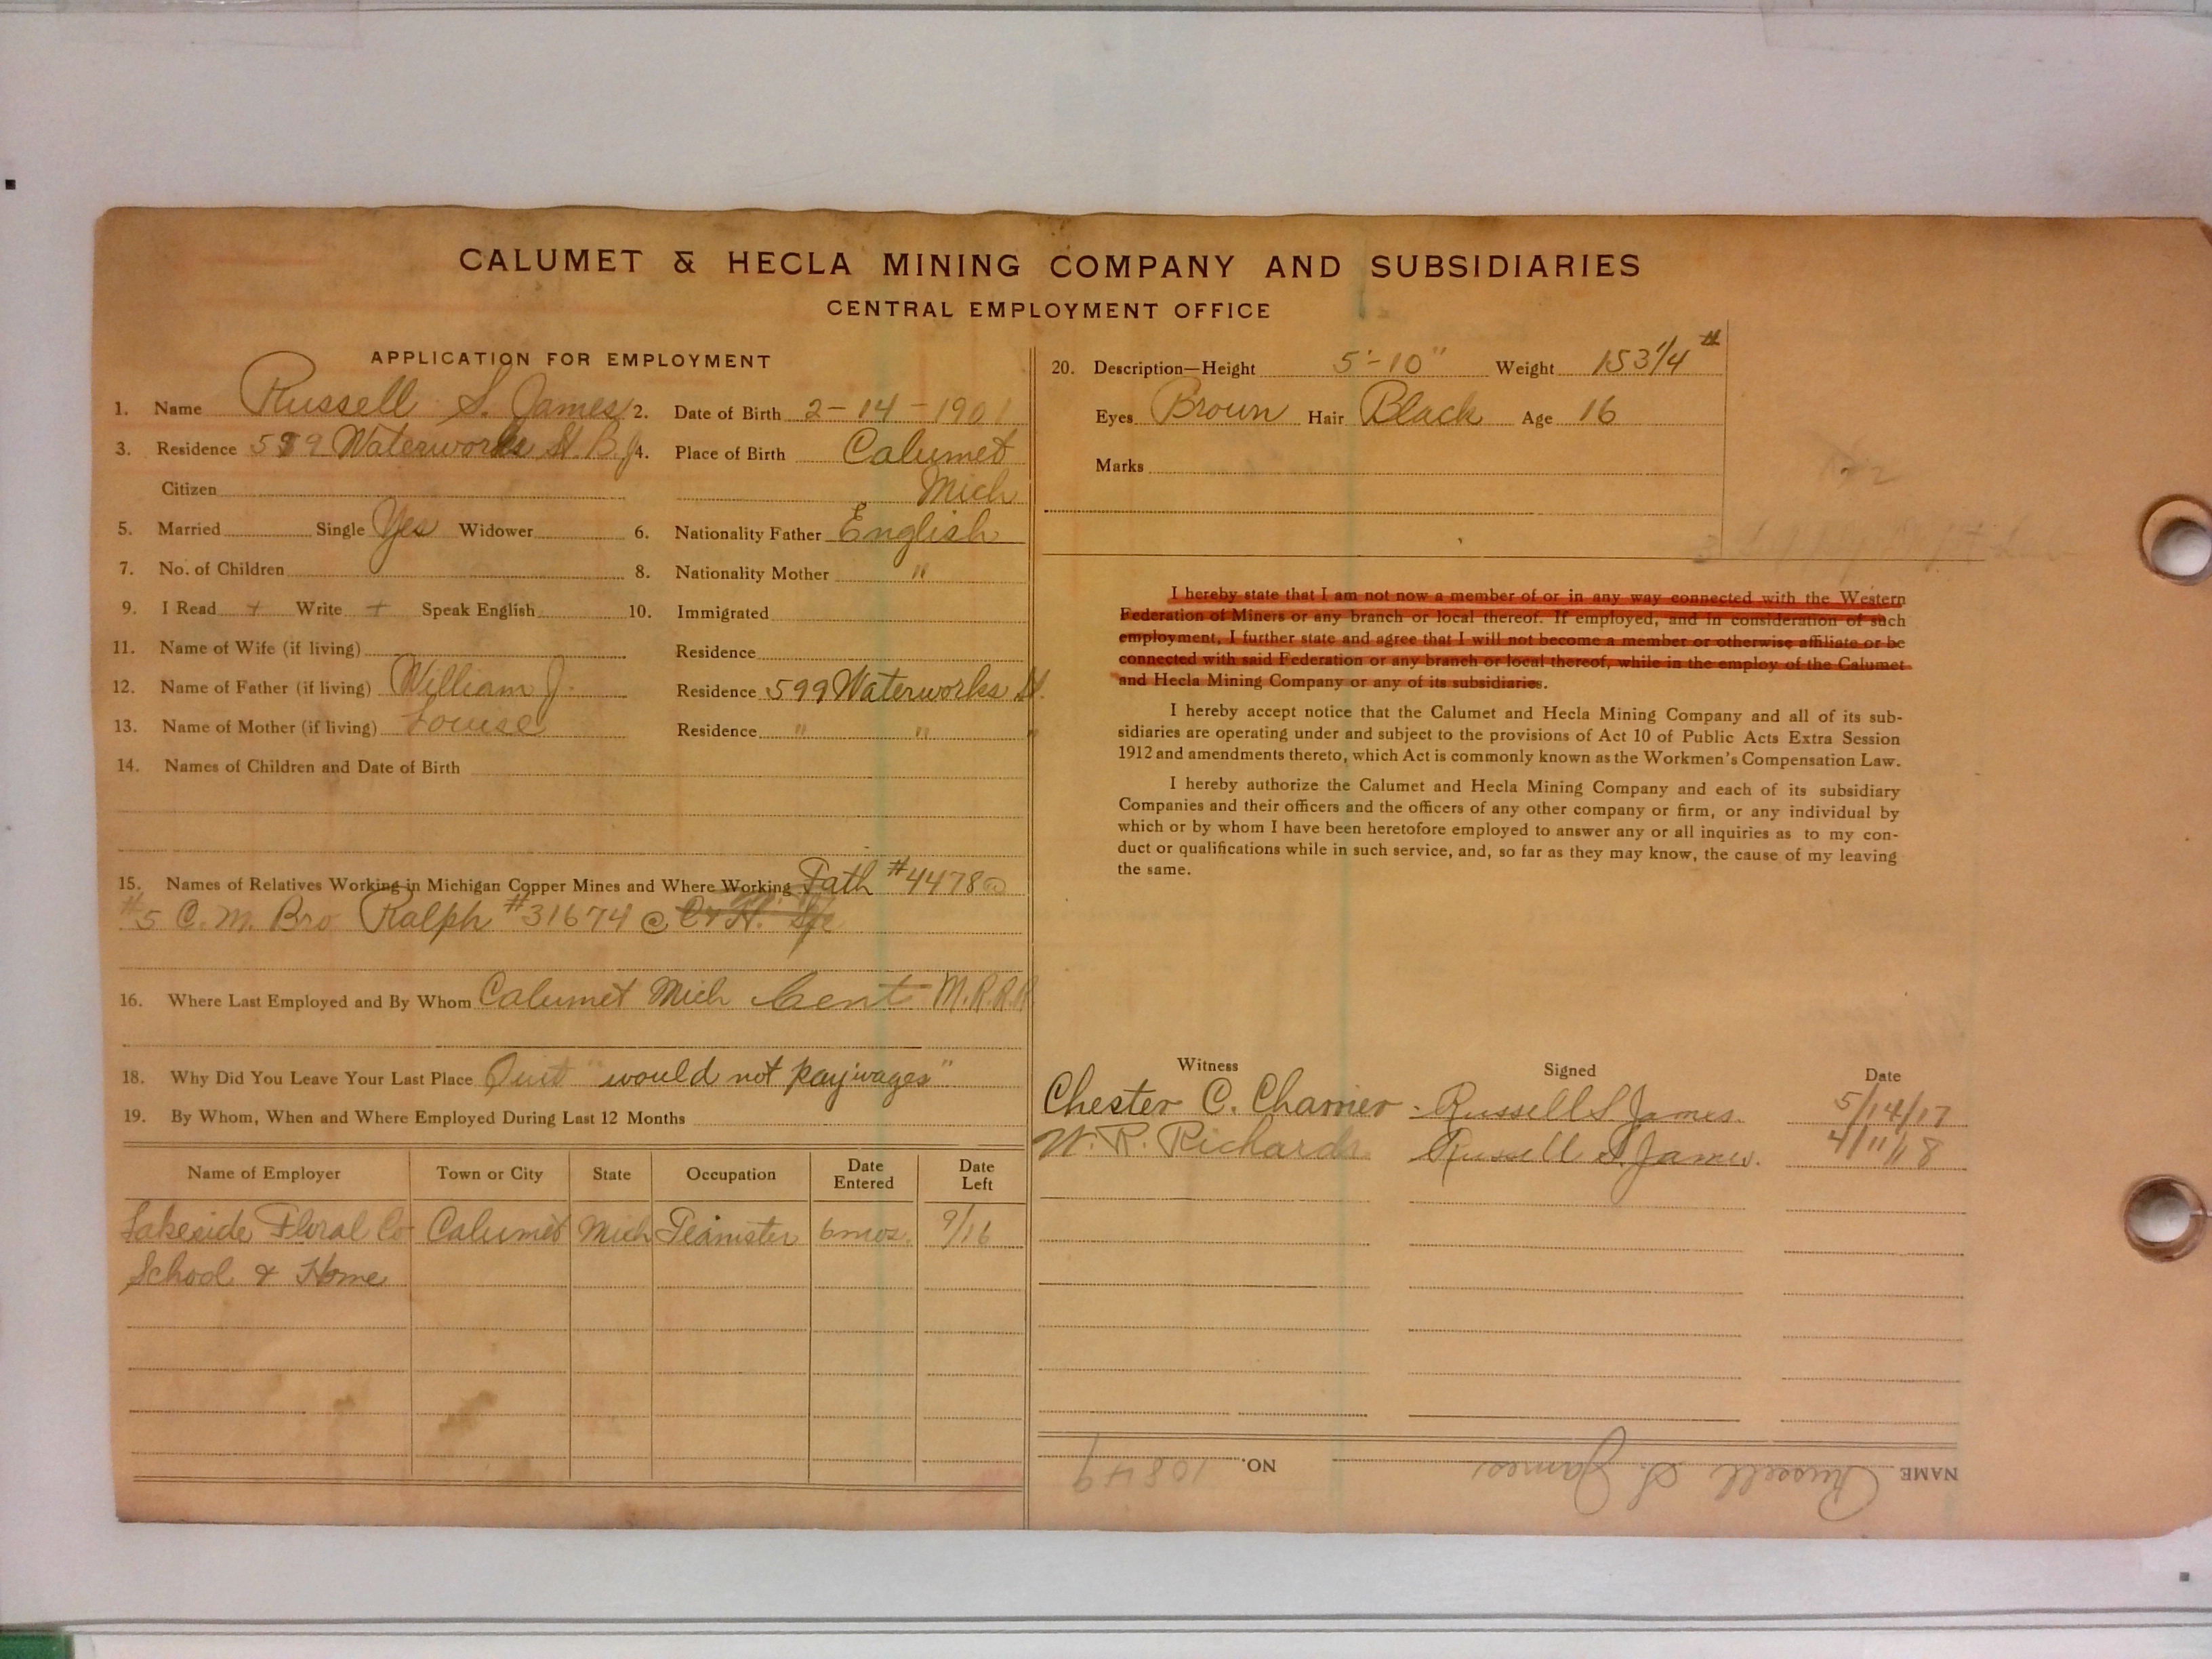 CALUMET & HECLA MINING COMPANY AND SUBSIDIARIES
CENTRAL EMPLOYMENT OFFICE
APPLICATION FOR EMPLOYMENT
1. Name Russell S. James 2. Date of Birth 2-14-1901
3. Residence 599 Waterworks St. 4. Place of Birth Calumet
Citizen Mich
5. Married Single Yes Widower 6. Nationality Father English
7. No. of Children 8. Nationality Mother "
9. I Read + Write + Speak English 10. Immigrated
11. Name of Wife (if living) Residence
12. Name of Father (if living) William J. Residence 599 Waterworks St.
13. Name of Mother (if living) Louise Residence " " "
14. Names of Children and Date of Birth
15. Names of Relatives Working in Michigan Copper Mines and Where Working Fath #4478 @
#5 C. M. Bro Ralph #31674 @ C & H.
16. Where Last Employed and By Whom Calumet Mich Cent M.R.R.R
18. Why Did You Leave Your Last Place Quit "would not pay wages"
19. By Whom, When and Where Employed During Last 12 Months
Name of Employer Town or City State Occupation Date Entered Date Left
Lakeside Floral Co Calumet Mich Teamster 6 mos. 9/16
School & Home
20. Description—Height 5'-10" Weight 153 1/4 #
Eyes Brown Hair Black Age 16
Marks
I hereby state that I am not now a member of or in any way connected with the Western
Federation of Miners or any branch or local thereof. If employed, and in consideration of such
employment, I further state and agree that I will not become a member or otherwise affiliate or be
connected with said Federation or any branch or local thereof, while in the employ of the Calumet
and Hecla Mining Company or any of its subsidiaries.
I hereby accept notice that the Calumet and Hecla Mining Company and all of its sub-
sidiaries are operating under and subject to the provisions of Act 10 of Public Acts Extra Session
1912 and amendments thereto, which Act is commonly known as the Workmen's Compensation Law.
I hereby authorize the Calumet and Hecla Mining Company and each of its subsidiary
Companies and their officers and the officers of any other company or firm, or any individual by
which or by whom I have been heretofore employed to answer any or all inquiries as to my con-
duct or qualifications while in such service, and, so far as they may know, the cause of my leaving
the same.
Witness Signed Date
Chester C. Charrier Russell S. James. 5/14/17
W. R. Richards Russell S. James. 4/11/18
NAME Russell S. James. NO. 10849